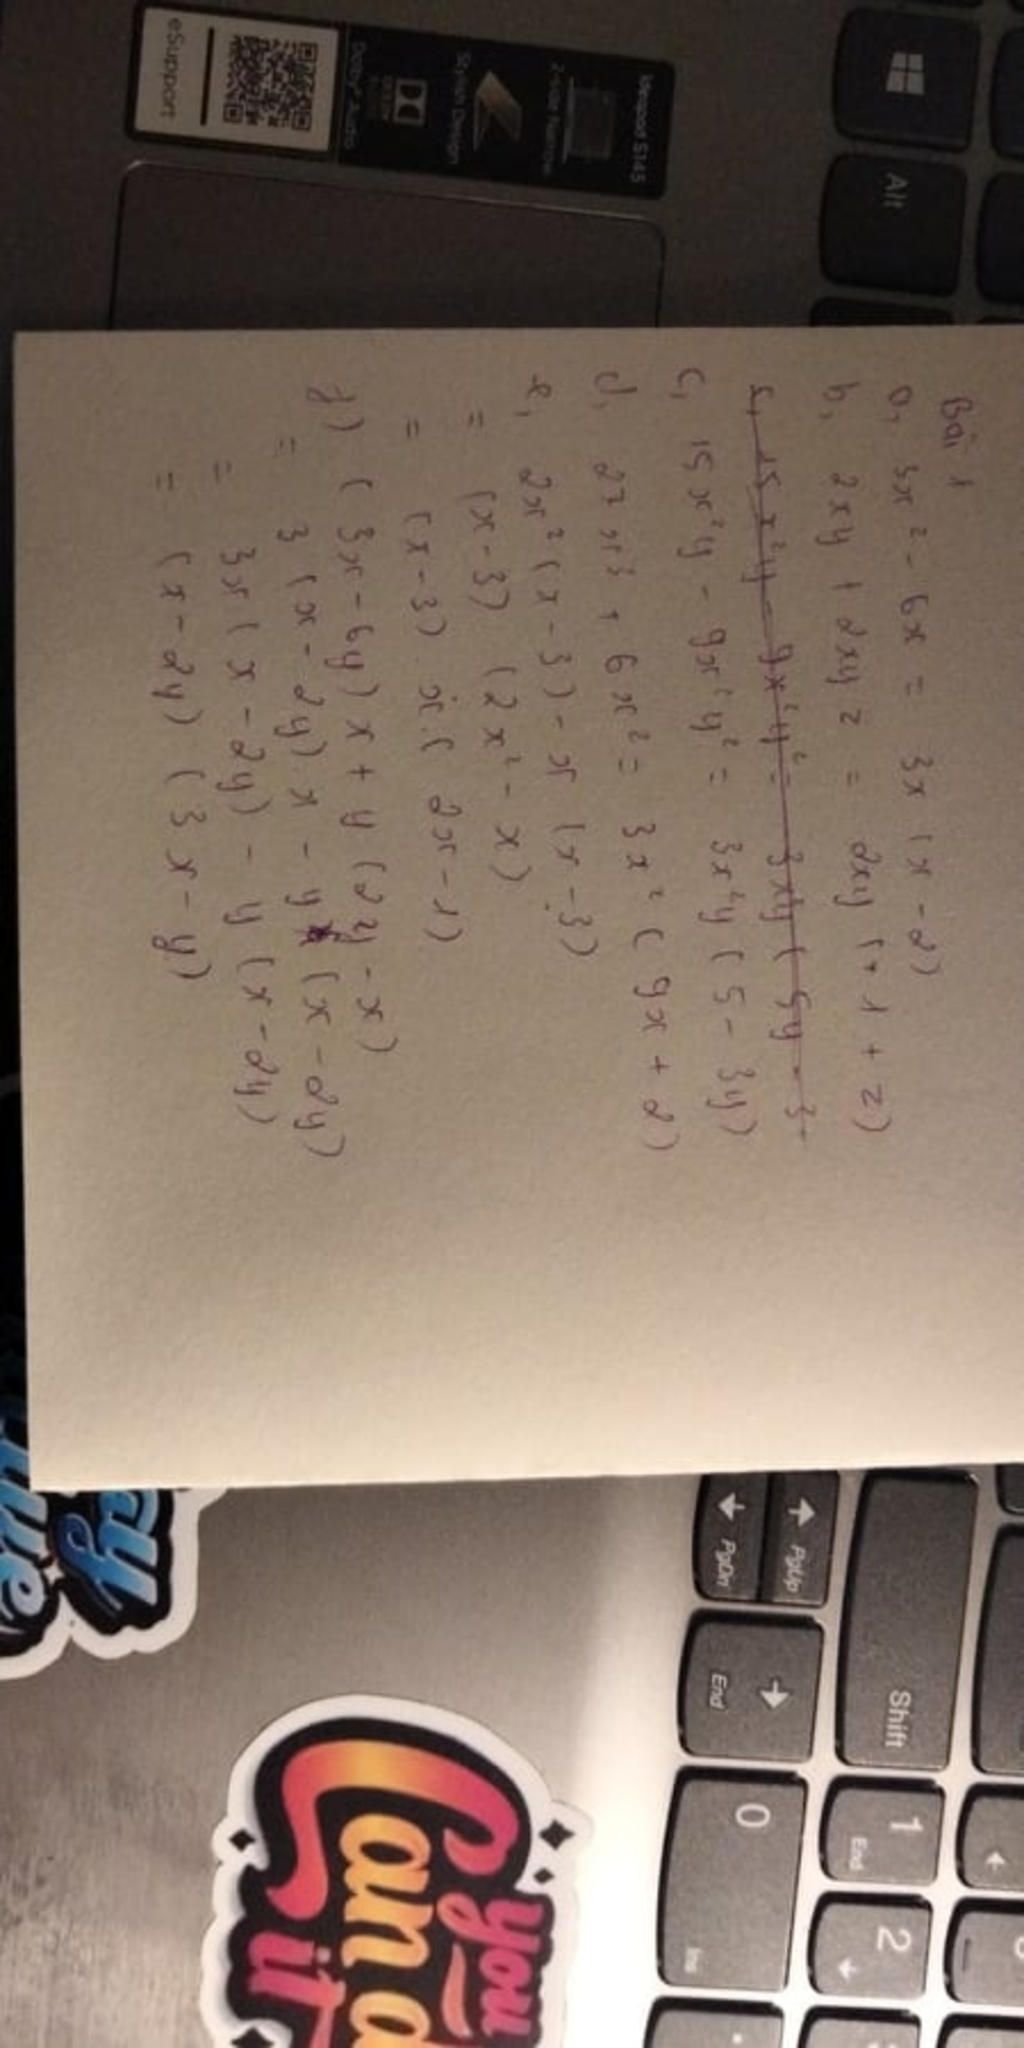 Bài 1
a, 3x² - 6x = 3x (x - 2)
b, 2xy + 2xyz = 2xy (1 + z)
c, 15x²y - 9x²y² = 3x²y (5y - 3
c, 15x²y - 9x²y² = 3x²y (5 - 3y)
d, 27x³ + 6x² = 3x² (9x + 2)
e, 2x² (x - 3) - x (x - 3)
= (x - 3) (2x² - x)
= (x - 3) . x . (2x - 1)
f) (3x - 6y) x + y (2y - x)
= 3 (x - 2y) x - y (x - 2y)
= 3x (x - 2y) - y (x - 2y)
= (x - 2y) (3x - y)
ideapad S145
Stylish Design
Dolby Audio
DOLBY
eSupport
Alt
PgUp
PgDn
Shift
End
0
Ins
1
End
2
you
Can do
it